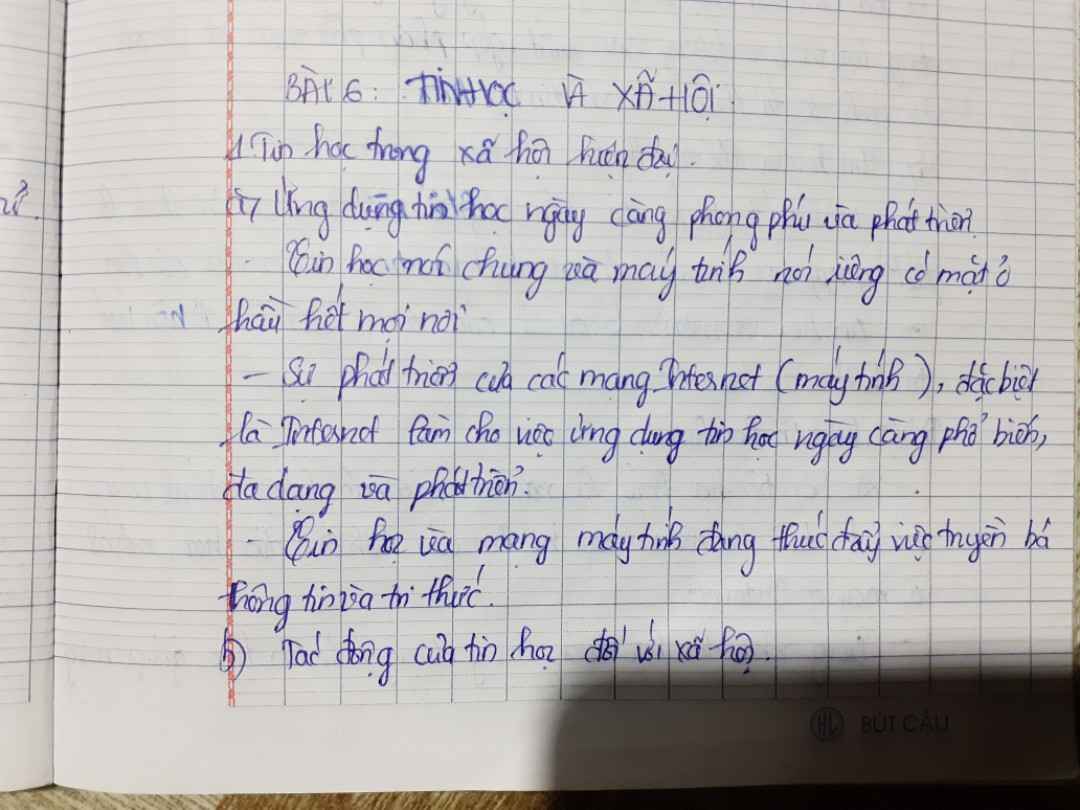 BÀI 6: TIN HỌC VÀ XÃ HỘI.
1. Tin học trong xã hội hiện đại.
a, Ứng dụng tin học ngày càng phong phú và phát triển
- Tin học nói chung và máy tính nói riêng có mặt ở
hầu hết mọi nơi
- Sự phát triển của các mạng Internet (máy tính), đặc biệt
là Internet làm cho việc ứng dụng tin học ngày càng phổ biến,
đa dạng và phát triển.
- Tin học và mạng máy tính đang thúc đẩy việc truyền bá
thông tin và tri thức.
b) Tác động của tin học đối với xã hội.
BÚT CÂU